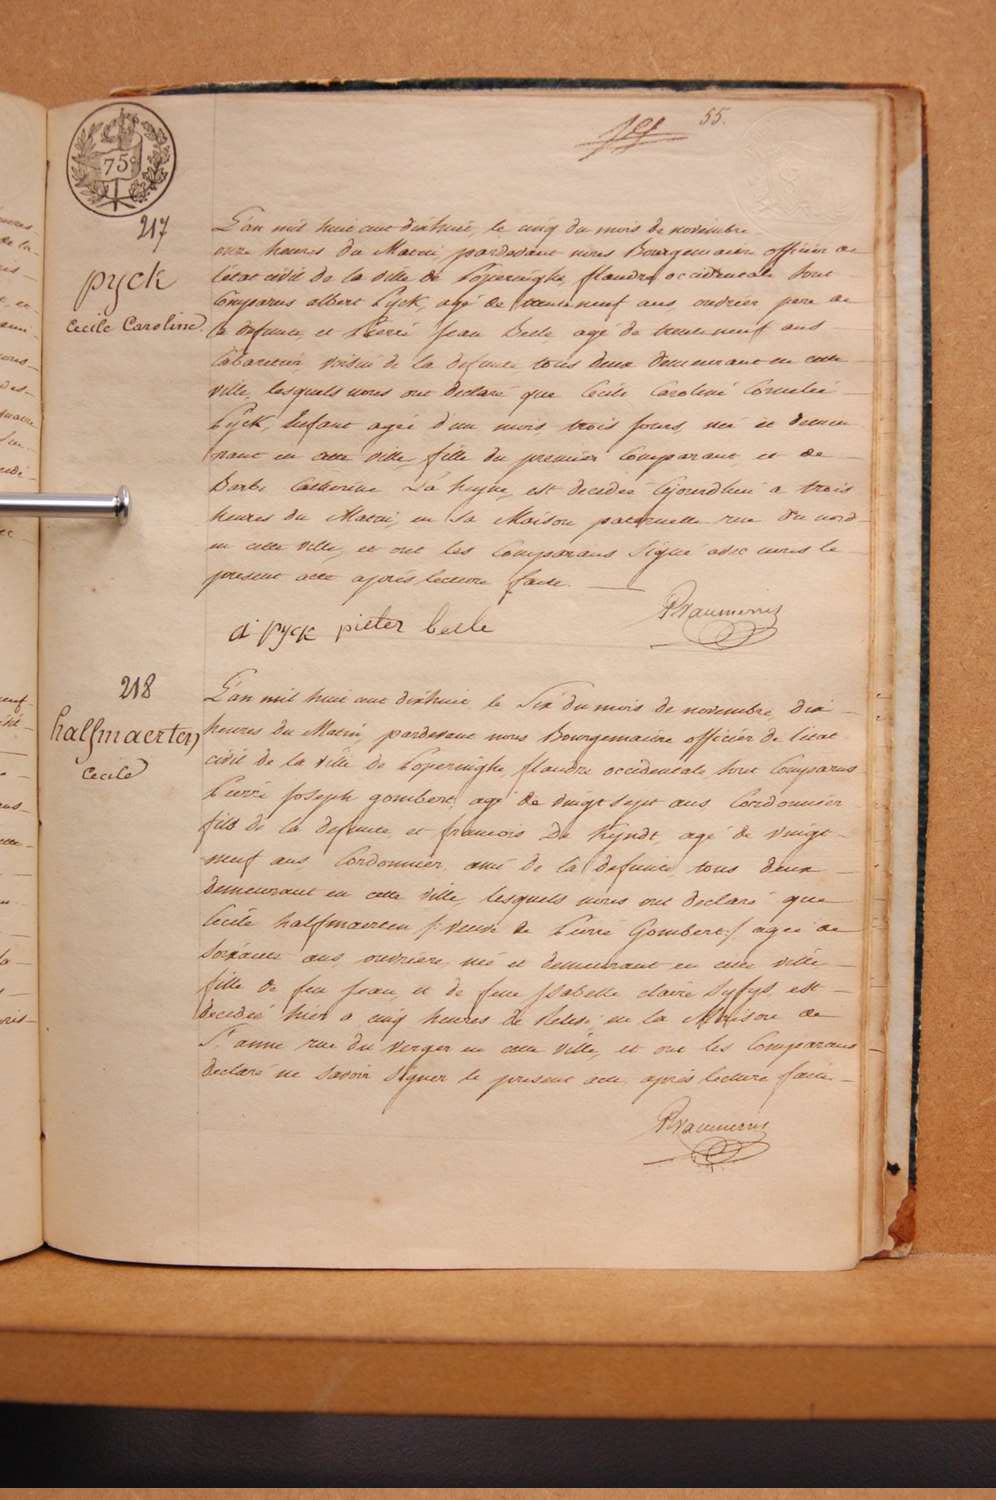 55.
75c
217
pyck
Cecile Caroline
L'an mil huit cent dixhuit, le cinq du mois de novembre
onze heures du Matin, pardevant nous Bourgemaitre officier de
l'etat civil de la ville de Poperinghe, flandre occidentale sont
Comparus albert Pyck, agé de trenteneuf ans, ouvrier pere de
la defunte, et Pierre Jean Belle agé de trenteneuf ans
Cabaretier voisin de la defunte tous deux demeurant en cette
ville, lesquels nous ont declaré que Cecile Caroline Cornelie
Pyck, Enfant agée d'un mois, trois jours, née et demeu
rant en cette ville, fille du premier Comparant, et de
Barbe Catherine, est decedée ajourdhui a trois
heures du Matin, en sa Maison paternelle rue du nord
en cette ville, et ont les Comparans Signé avec nous le
present acte après lecture faite.
a pyck pieter belle
218
halfmaerten
Cecile
L'an mil huit cent dixhuit le Six du mois de novembre, dix
heures du Matin, pardevant nous Bourgemaitre officier de l'etat
civil de la ville de Poperinghe, flandre occidentale, sont Comparus
Pierre Joseph gombert, agé de vingt sept ans Cordonnier
fils de la defunte, et francois De Kyndt, agé de vingt
neuf ans, Cordonnier, ami de la defunte, tous deux
demeurant en cette ville, lesquels nous ont declaré que
Cecile halfmaerten /: veuve de Pierre Gombert :/ agée de
Soixante ans, ouvriere, née et demeurant en cette ville
fille de feu Jean, et de feue Isabelle claire, est
decedée hier a cinq heures de, en la Maison de
St. anne rue du verger en cette ville, et ont les Comparans
declaré ne savoir signer le present acte, après lecture faite